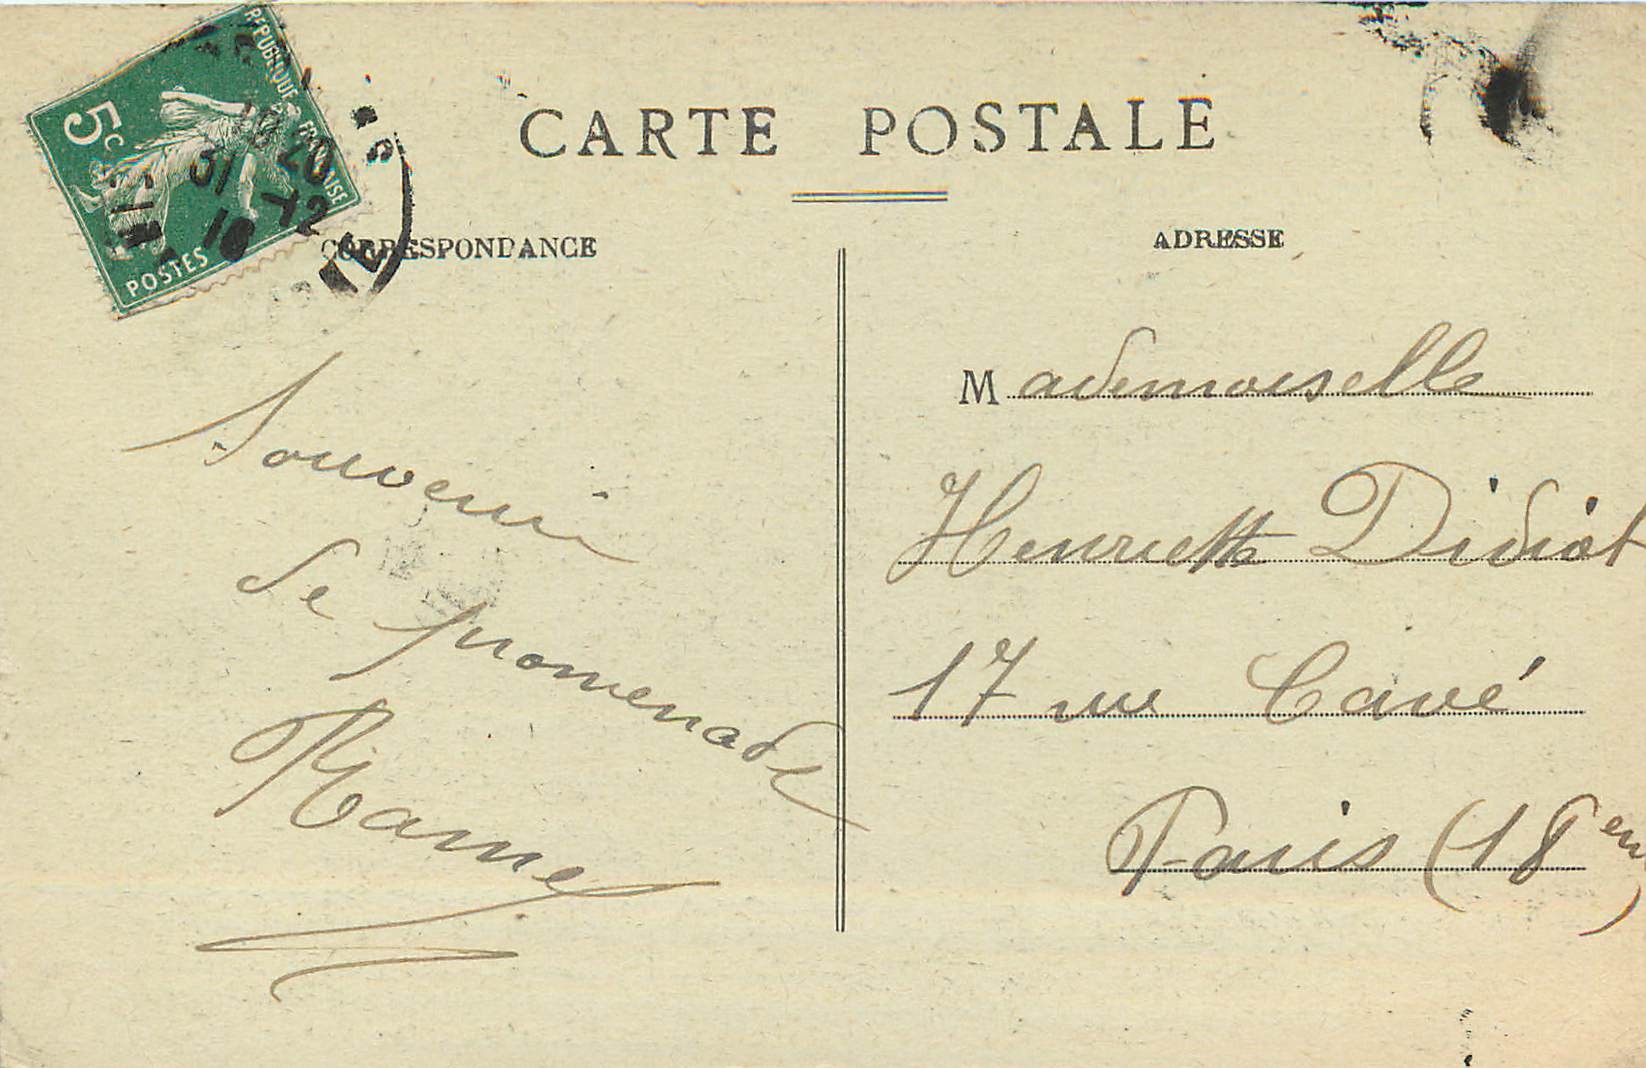 REPUBLIQUE FRANÇAISE
5c
POSTES
CARTE POSTALE
CORRESPONDANCE
ADRESSE
Souvenir
de promenade
Mademoiselle
Henriette Didiot
17 rue Cavé
Paris (18em)